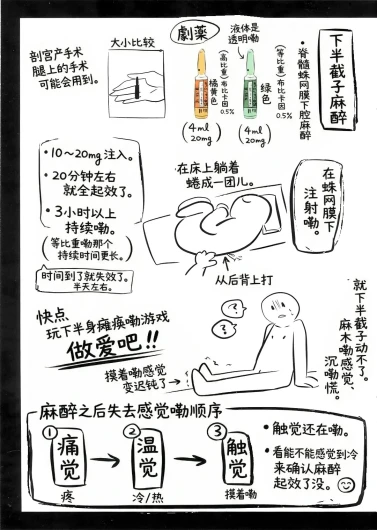 下半截子麻醉
・脊髓蛛网膜下腔麻醉
劇薬
液体是
透明嘞
(高比重)布比卡因
0.5%
橘黄色
(4ml
20mg)
(等比重)布比卡因
0.5%
绿色
(4ml
20mg)
大小比较
剖宫产手术
腿上的手术
可能会用到。
・10～20mg注入。
・20分钟左右
就全起效了。
・3小时以上
持续嘞。
(等比重嘞那个
持续时间更长。)
时间到了就失效了。
半天左右。
在床上躺着
蜷成一团儿。
从后背上打
在蛛网膜下
注射嘞。
快点、
玩下半身瘫痪嘞游戏
做爱吧!!
摸着嘞感觉
变迟钝了
?
?
就下半截子动不了。
麻木嘞感觉、
沉嘞慌。
麻醉之后失去感觉嘞顺序
①
痛觉
疼
②
温觉
冷/热
③
触觉
摸着嘞
・触觉还在嘞。
・看能不能感觉到冷
来确认麻醉
起效了没。